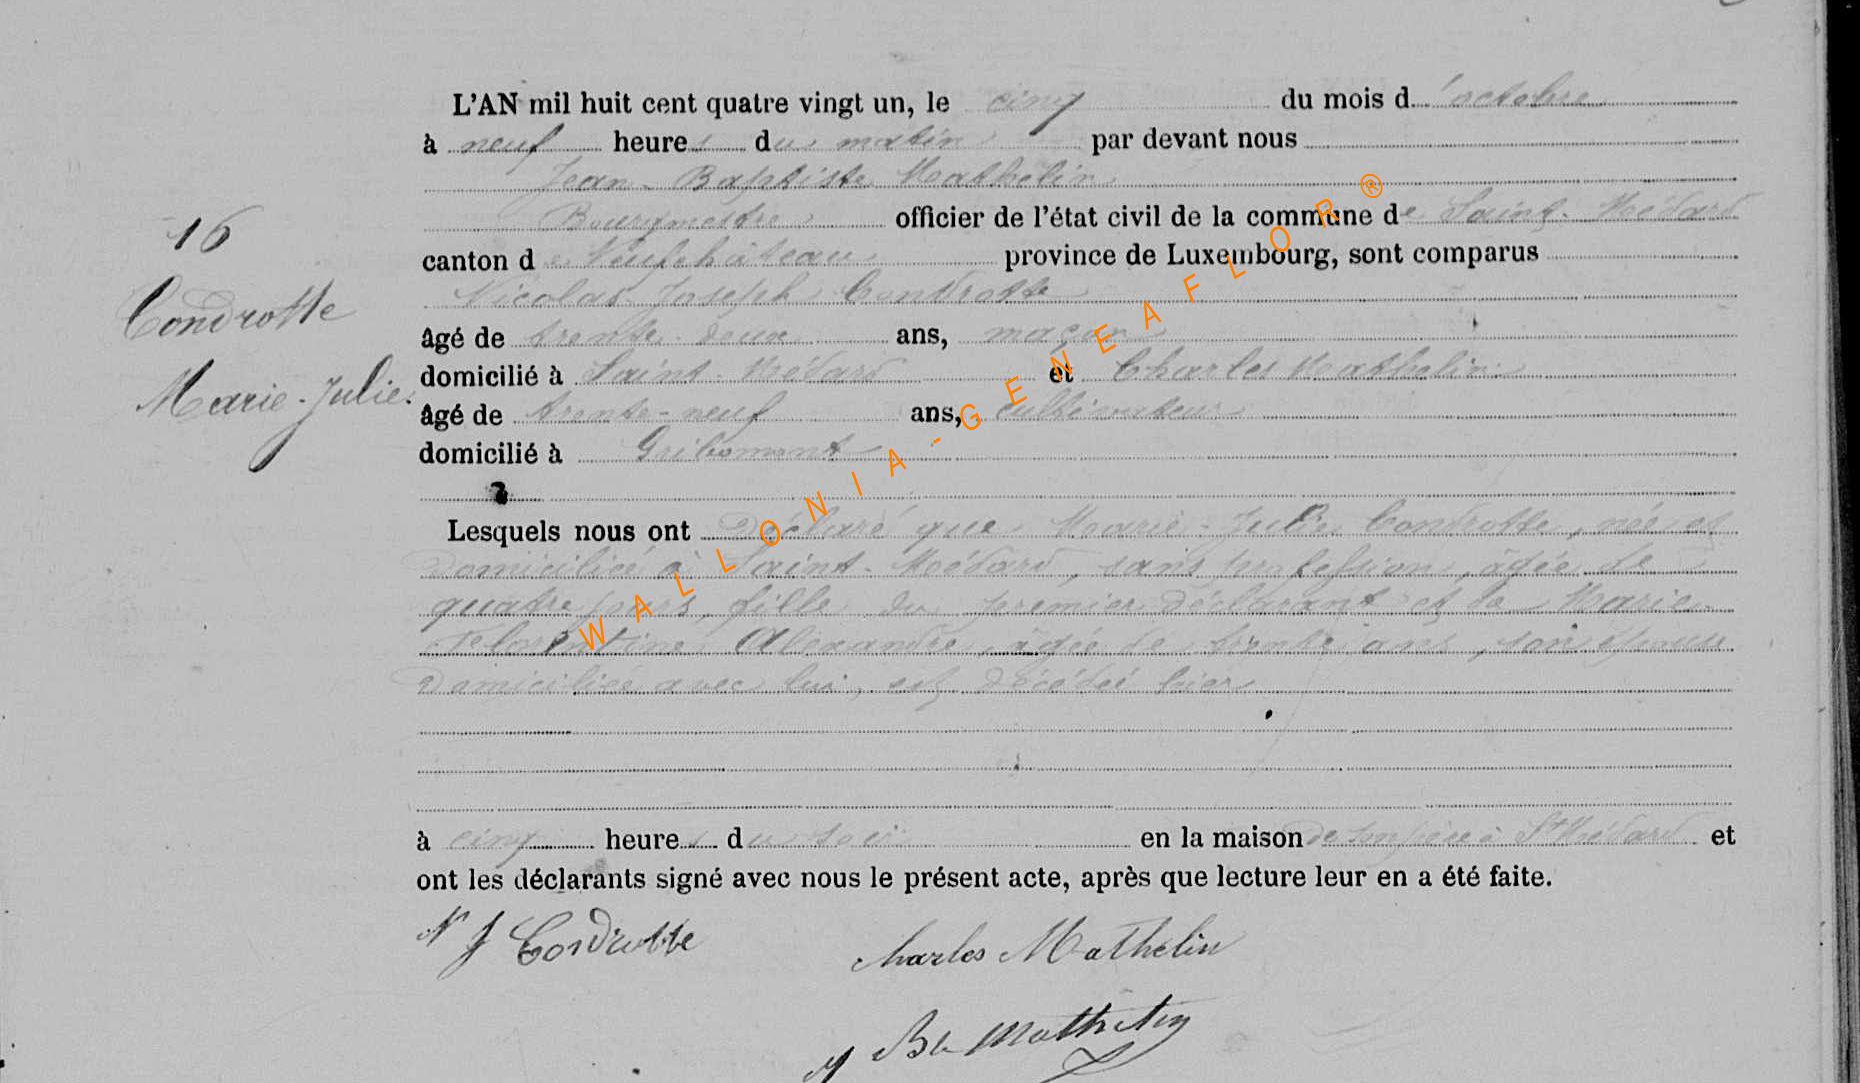 L'AN mil huit cent quatre vingt un, le cinq du mois d'octobre
à neuf heures du matin par devant nous
Jean-Baptiste Mathelin
Bourgmestre officier de l'état civil de la commune de Saint-Médard
16
canton de Neufchâteau province de Luxembourg, sont comparus
Nicolas-Joseph Condrotte
Condrotte
âgé de trente-deux ans, maçon
domicilié à Saint-Médard et Charles Mathelin
Marie-Julie.
âgé de trente-neuf ans, cultivateur
domicilié à Gribomont
Lesquels nous ont déclaré que Marie-Julie Condrotte, née et
domiciliée à Saint-Médard, sans profession, âgée de
quatre jours, fille du premier déclarant et de Marie
Florentine Alexandre, agée de trente ans, son épouse
domiciliée avec lui, est décédée hier
à cinq heures du soir en la maison de son père à St Médard et
ont les déclarants signé avec nous le présent acte, après que lecture leur en a été faite.
N J Condrotte Charles Mathelin
J Bte Mathelin
WALLONIA-GENEAFLOR®